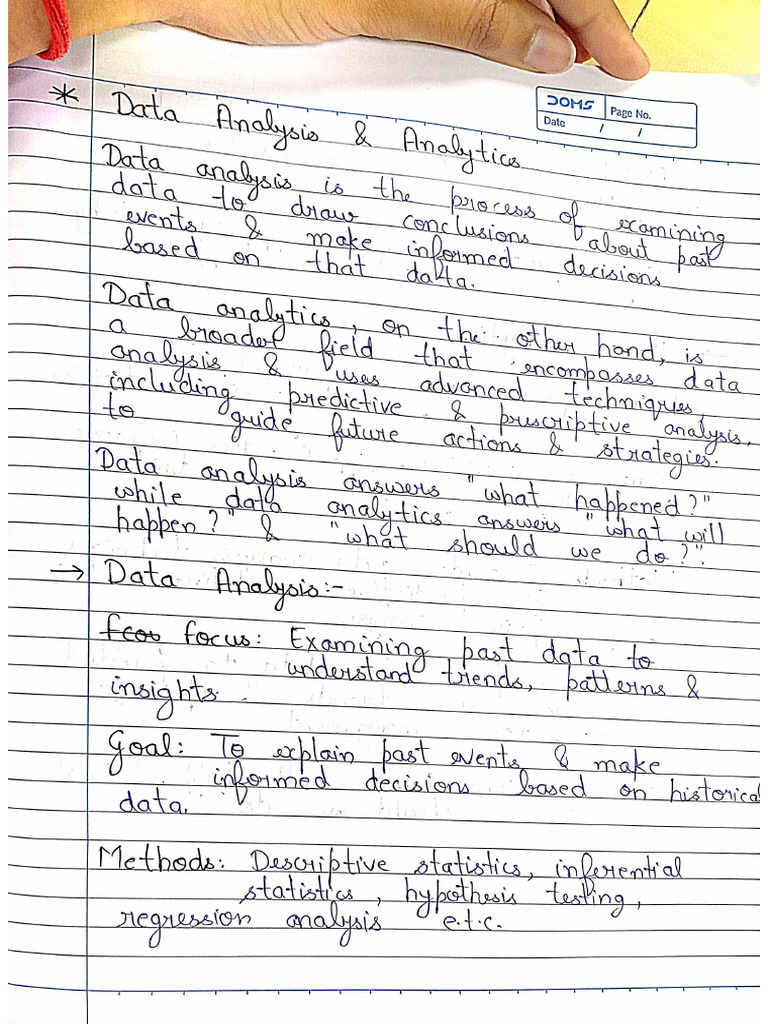 DOMS Page No.
Date / /
* Data Analysis & Analytics
Data analysis is the process of examining
data to draw conclusions about past
events & make informed decisions
based on that data.
Data analytics, on the other hand, is
a broader field that encompasses data
analysis & uses advanced techniques,
including predictive & prescriptive analysis,
to guide future actions & strategies.
Data analysis answers "what happened?"
while data analytics answers "what will
happen?" & "what should we do?".
→ Data Analysis:-
focus: Examining past data to
understand trends, patterns &
insights.
Goal: To explain past events & make
informed decisions based on historical
data.
Methods: Descriptive statistics, inferential
statistics, hypothesis testing,
regression analysis e.t.c.